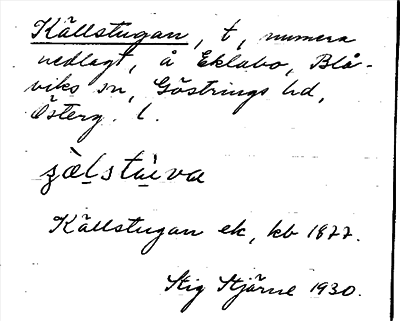 Källstugan, t, numera
nedlagt, å Eklabo, Blå-
viks sn, Göstrings hd,
Österg. l.
Källstugan ek, kb 1877.
Stig Stjärne 1930.